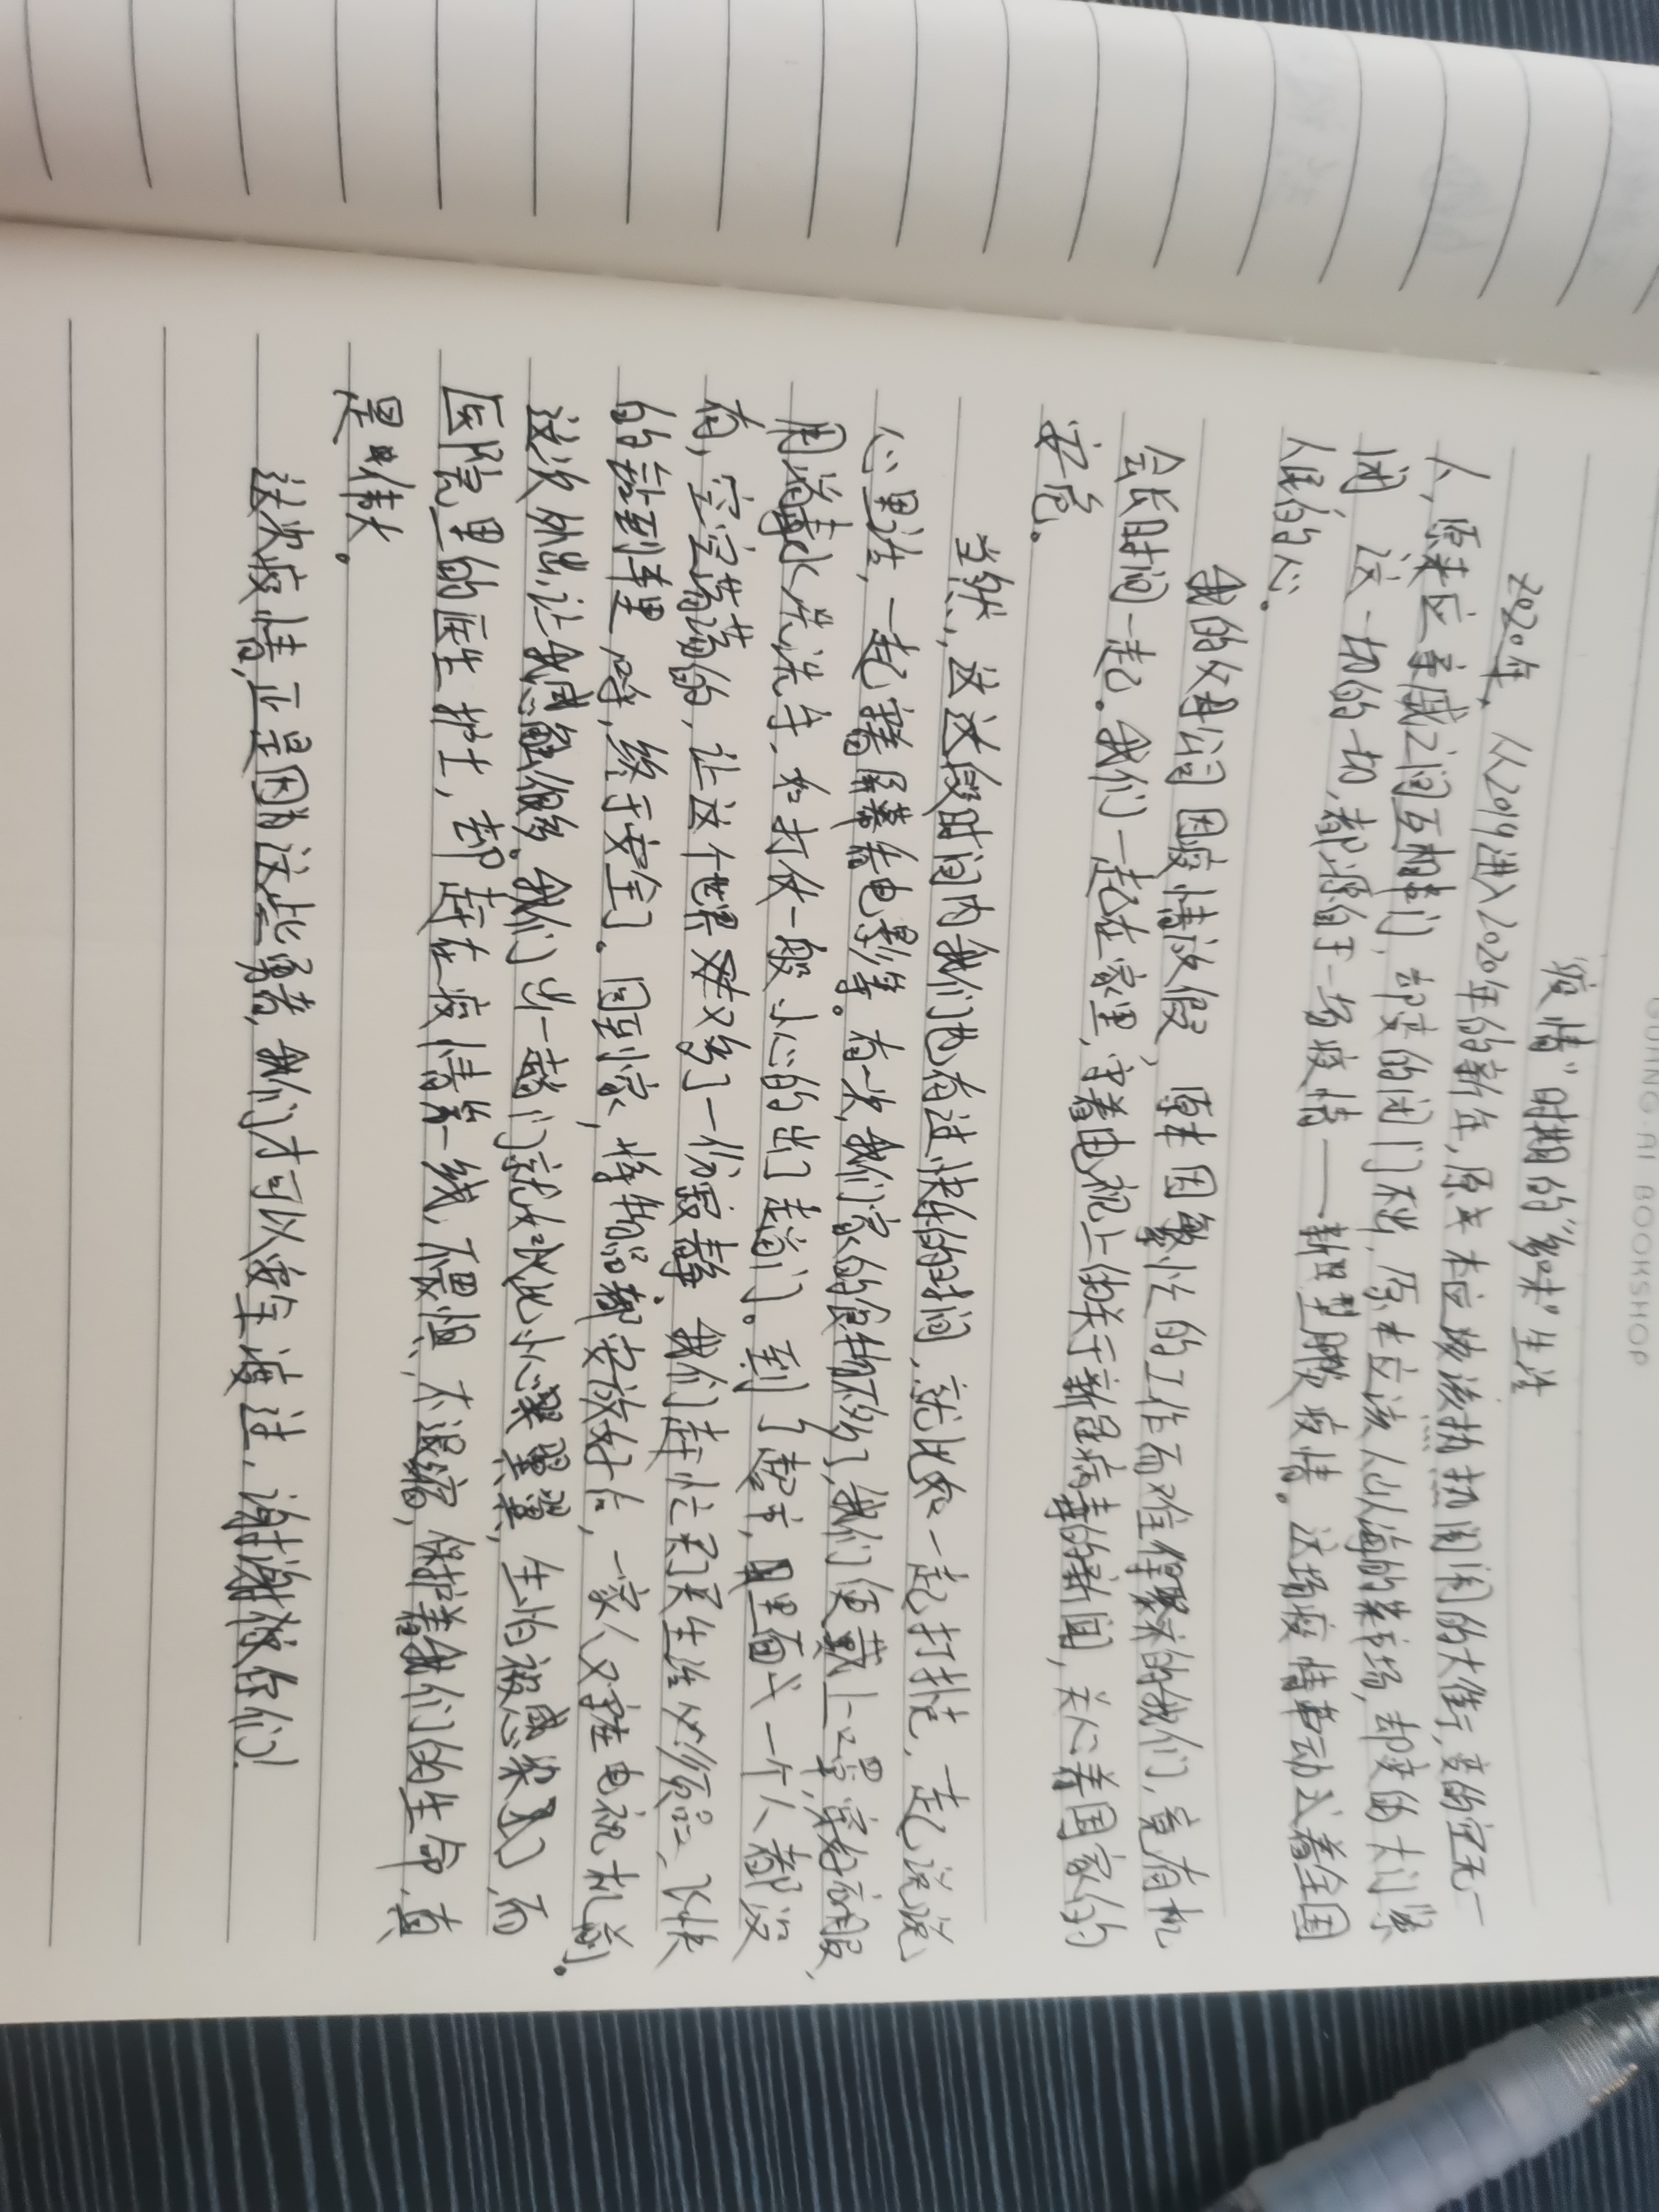 GUHNG·AI BOOKSHOP
“疫情”时期的“多味”生活
2020年，从2019进入2020年的新年，原本应该热热闹闹的大街，变的空无一
人，原来应亲戚之间互相串门，却变的闭门不出，原本应该人山人海的菜场，却变的大门紧
闭 这一切的一切，都源自于一场疫情——新冠型肺炎疫情。这场疫情牵动这着全国
人民的心。
我的父母公司因疫情放假，原本因繁忙的工作而难得聚来的我们，竟有机
会长时间一起。我们一起在家里，守着电视上的关于新冠病毒的新闻，关心着国家的
安危。
当然，这这段时间内我们也有过快乐的时间，就比如一起打扑克，一起说说
心里话，一起窝屏幕看电影等。有一次，我们家的食物不多了，我们便戴上口罩，穿好衣服、
用消毒水洗洗手，如打仗一般小心的出门走前门。到了超市，里面一个人都没
有，空空荡荡的，让这个世界又多了一份寂静。我们赶忙买了买生活必须品，飞快
的赶到车里，呼，终于安全了。回到家，将物品都安放好后，一家人又守在电视机前。
这次外出，让我感触很多。我们出一趟门就如此小心翼翼，生怕被感染到，而
医院里的医生护士，却赶在疫情第一线，不畏惧，不退缩，保护着我们的生命，真
是伟大。
这次疫情，正是因为这些勇者，我们才可以安全渡过，谢谢你们！